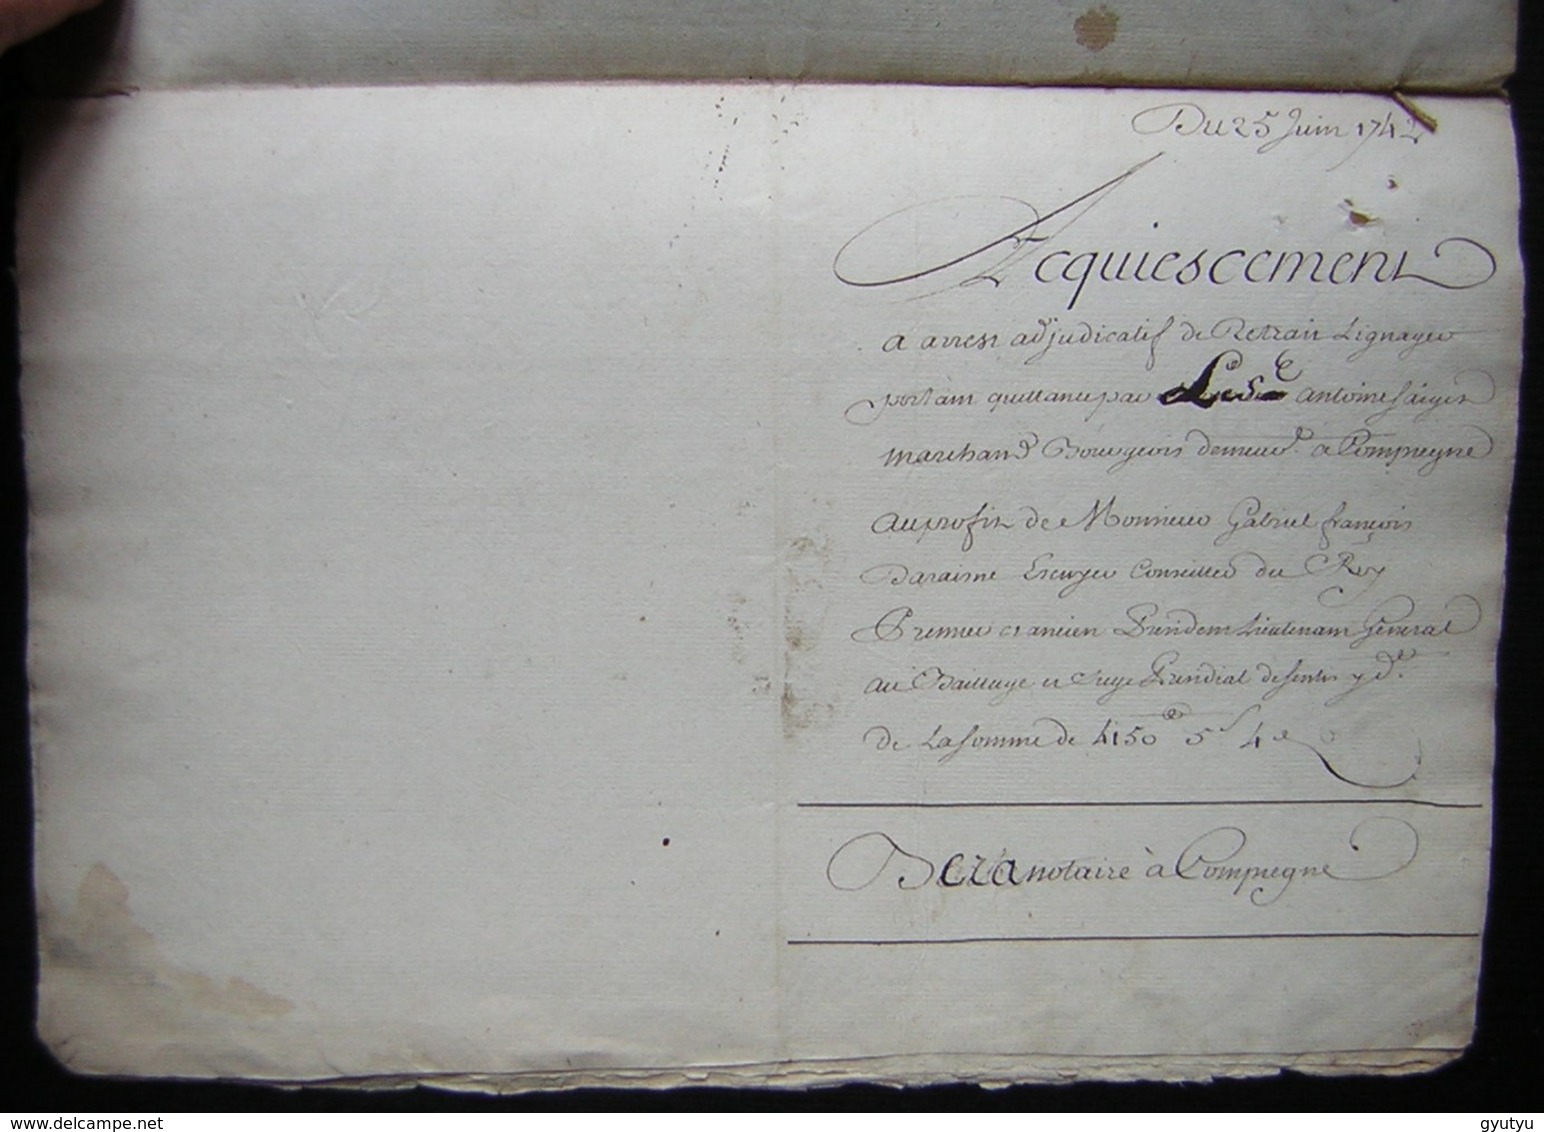 Du 25 Juin 1742
Acquiescement
a arrest adjudicatif de Retrait Lignager
portant quittance par Le Sr antoine
marchand Bourgeois demeurt a Compiegne
au profit de Monsieur Gabriel françois
Escuyer Conseiller du Roy
Premier et ancien President Lieutenant General
au Bailliage et Siege Presidial de Senlis
de La somme de 4150 5s 4d
notaire à Compiegne
www.delcampe.net
gyutyu